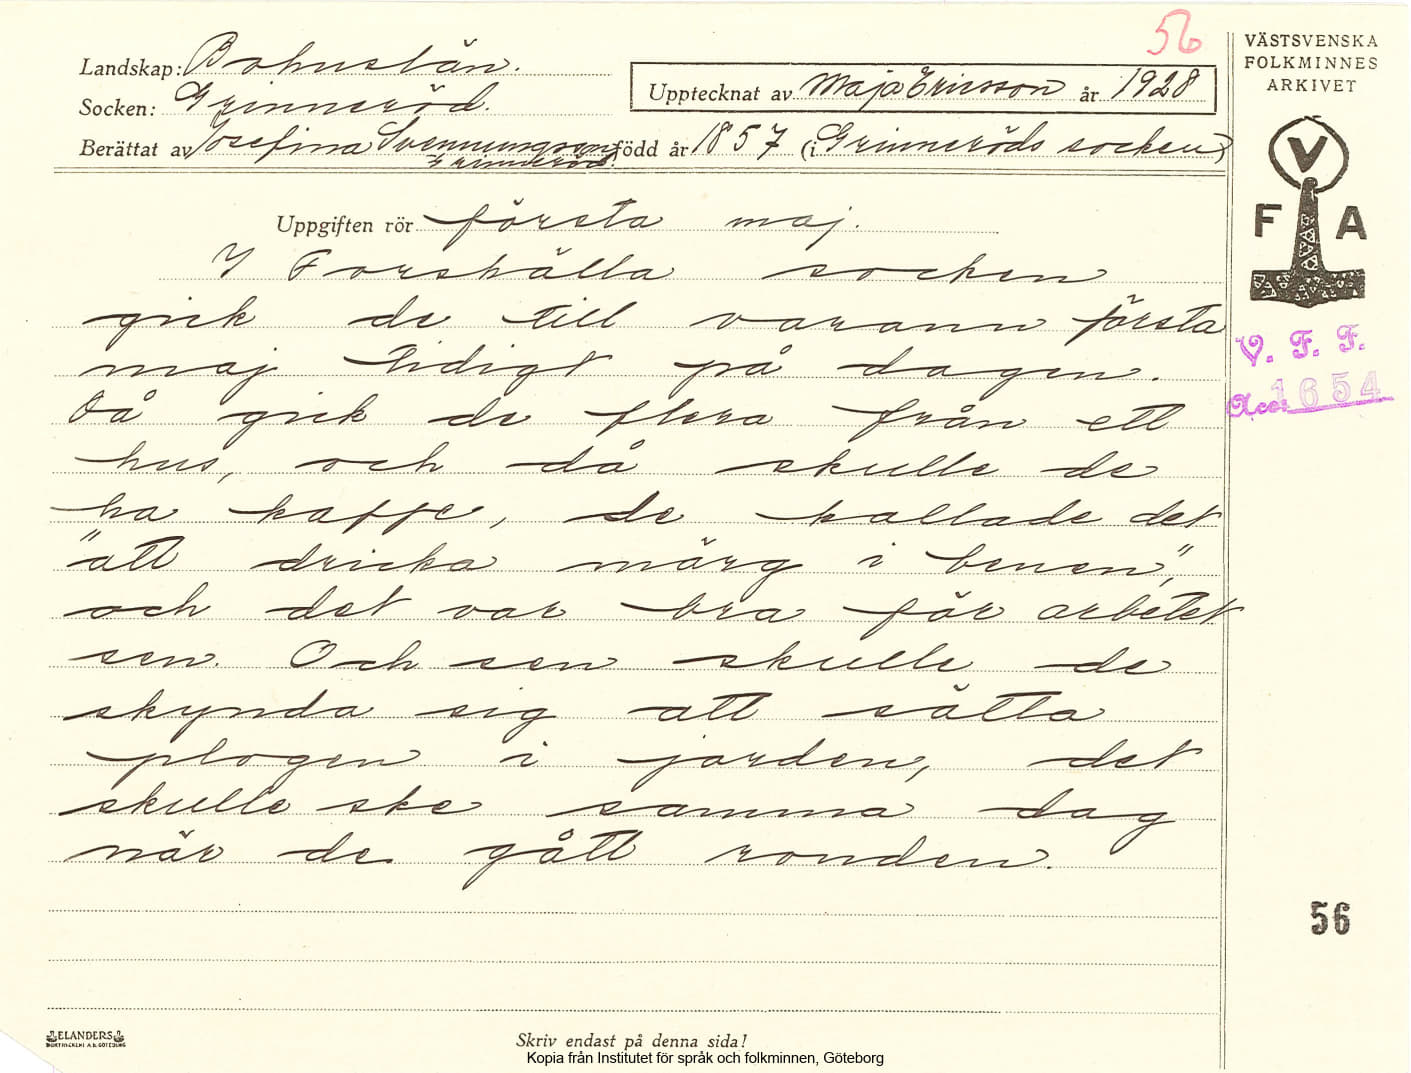 56
Landskap: Bohuslän.
Socken: Grinneröd.
Upptecknat av Maja Ericsson år 1928
Berättat av Josefina Svenningson, född år 1857 (i Grinneröds socken)
Grinneröd
Uppgiften rör första maj.
I Forshälla socken
gick de till varann första
maj tidigt på dagen.
Då gick de flera från ett
hus, och då skulle de
ha kaffe, de kallade det
"att dricka märg i benen",
och det var bra för arbetet
sen. Och sen skulle de
skynda sig att sätta
plogen i jorden, det
skulle ske samma dag
när de gått ronden.
ELANDERS
BOKTRYCKERI A.B. GÖTEBORG
Skriv endast på denna sida!
Kopia från Institutet för språk och folkminnen, Göteborg
VÄSTSVENSKA
FOLKMINNES
ARKIVET
V
F A
V. F. F.
Acc: 1654
56